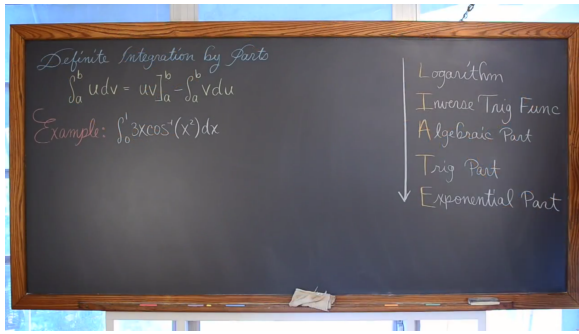 Definite Integration by Parts
∫ₐᵇ udv = uv]ₐᵇ - ∫ₐᵇ vdu
Example: ∫₀¹ 3xcos⁻¹(x²)dx
Logarithm
Inverse Trig Func
Algebraic Part
Trig Part
Exponential Part